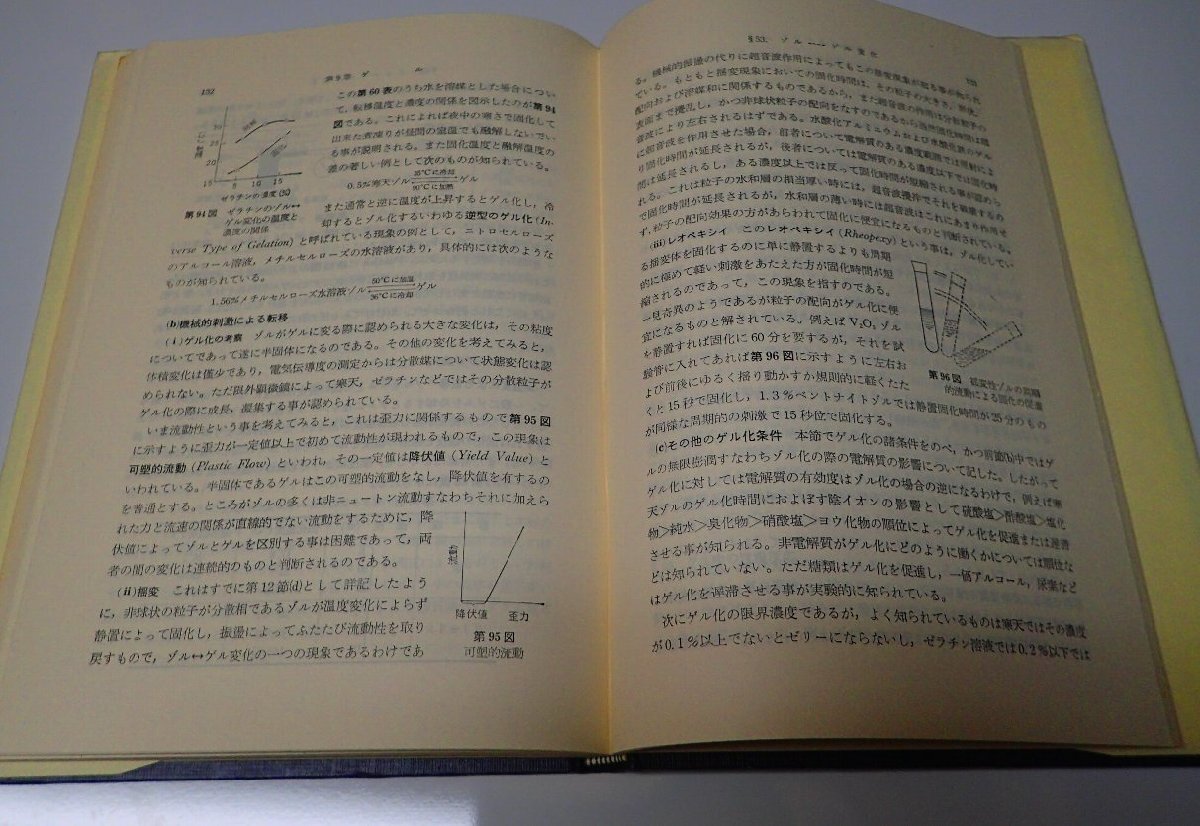 132
第9章 ゲル
30
25
20
15
5 10 15
ゼラチンの濃度(%)
第94図 ゼラチンのゾル↔
ゲル変化の温度と
濃度の関係
この第60表のうち水を溶媒とした場合につい
て，転移温度と濃度の関係を図示したのが第94
図である。これによれば夜中の寒さで固化して
出来た煮凍りが昼間の室温でも融解しないでい
る事が説明される。また固化温度と融解温度の
差の著しい例として次のものが知られている。
0.5%寒天ゾル 35℃に冷却 90℃に加熱 ゲル
また通常と逆に温度が上昇するとゲル化し，冷
却するとゾル化するいわゆる逆型のゲル化(In-
verse Type of Gelation) と呼ばれている現象の例として，ニトロセルローズ
のアルコール溶液，メチルセルローズの水溶液があり，具体的には次のような
ものが知られている。
1.56%メチルセルローズ水溶液ゾル 50℃に加温 36℃に冷却 ゲル
(b)機械的刺激による転移
(i)ゲル化の考察 ゾルがゲルに変る際に認められる大きな変化は，その粘度
についてであって遂に半固体になるのである。その他の変化を考えてみると，
体積変化は僅少であり，電気伝導度の測定からは分散媒について状態変化は認
められない。ただ限外顕微鏡によって寒天，ゼラチンなどではその分散粒子が
ゲル化の際に成長，凝集する事が認められている。
いま流動性という事を考えてみると，これは歪力に関係するもので第95図
に示すように歪力が一定値以上で初めて流動性が現われるもので，この現象は
可塑的流動 (Plastic Flow) といわれ，その一定値は降伏値 (Yield Value) と
いわれている。半固体であるゲルはこの可塑的流動をなし，降伏値を有するの
を普通とする。ところがゾルの多くは非ニュートン流動すなわちそれに加えら
れた力と流速の関係が直線的でない流動をするために，降
伏値によってゾルとゲルを区別する事は困難であって，両
者の間の変化は連続的のものと判断されるのである。
(ii)揺変 これはすでに第12節(d)として詳記したよう
に，非球状の粒子が分散相であるゾルが温度変化によらず
静置によって固化し，振盪によってふたたび流動性を取り
戻すもので，ゾル↔ゲル変化の一つの現象であるわけであ
降伏値 歪力
第95図
可塑的流動
§53. ゾル↔ゲル変化
133
る。機械的振盪の代りに超音波作用によってもこの揺変現象が起る事が知られ
ている。もともと揺変現象においての固化時間は，その粒子の大きさ，形状，
配向および溶媒和に関係するものであるから，また超音波の作用は分散粒子の
表面まで擾乱し，かつ非球状粒子の配向をなすのであるから当然固化時間は超
音波により左右されるはずである。水酸化アルミニウムおよび水酸化鉄のゲル
に超音波を作用させた場合，前者について電解質のある濃度範囲では照射によ
り固化時間が延長されるが，後者については電解質のある濃度以下では固化時
間は延長されるし，ある濃度以上では反って固化時間が短縮される事が認めら
れる。これは粒子の水和層の相当厚い時には，超音波攪拌でそれを破壊するの
で固化時間が延長されるが，水和層の薄い時には超音波はこれにあまり作用せ
ず，粒子の配向効果の方があらわれて固化に便宜になるものと判断されている。
(iii)レオペキシイ このレオペキシイ(Rheopexy)という事は，ゾル化してい
る揺変体を固化するのに単に静置するよりも周期
的に極めて軽い刺激をあたえた方が固化時間が短
縮されるのであって，この現象を指すのである。
一見奇異のようであるが粒子の配向がゲル化に便
宜になるものと解されている。例えばV₂O₅ゾル
を静置すれば固化に60分を要するが，それを試
験管に入れてあれば第96図に示すように左右お
よび前後にゆるく揺り動かすか規則的に軽くたた
くと15秒で固化し，1.3%ベントナイトゾルでは静置固化時間が25分のもの
が同様な周期的の刺激で15秒位で固化する。
第96図 揺変性ゾルの周期
的流動による固化の促進
(c)その他のゲル化条件 本節でゲル化の諸条件をのべ，かつ前節(b)中ではゲ
ルの無限膨潤すなわちゾル化の際の電解質の影響について記した。したがって
ゲル化に対しては電解質の有効度はゾル化の場合の逆になるわけで，例えば寒
天ゾルのゲル化時間におよぼす陰イオンの影響として硫酸塩>酢酸塩>塩化
物>純水>臭化物>硝酸塩>ヨウ化物の順位によってゲル化を促進または遅滞
させる事が知られる。非電解質がゲル化にどのように働くかについては順位な
どは知られていない。ただ糖類はゲル化を促進し，一価アルコール，尿素など
はゲル化を遅滞させる事が実験的に知られている。
次にゲル化の限界濃度であるが，よく知られているものは寒天ではその濃度
が0.1%以上でないとゼリーにならないし，ゼラチン溶液では0.2%以下では